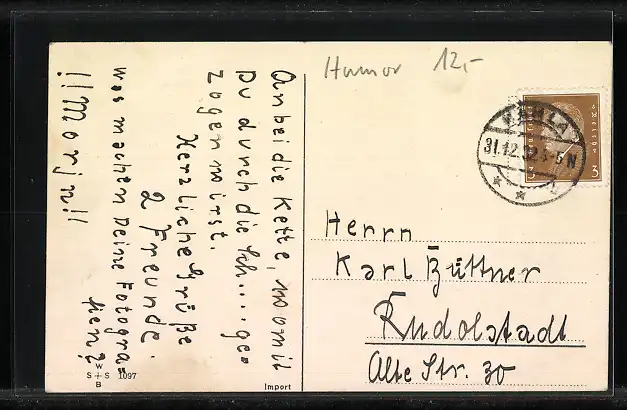 Humor 12,-
KAHLA
31.12.32.5-6 N
3 3
Anbei die Kette, womit
Du durch die Sch....ge=
zogen wirst.
Herzliche Grüße
2 Freunde.
was machen Deine Fotogra=
fien?
!! Morjn!!
Herrn
Karl Büttner
Rudolstadt
Alte Str. 30
W
S+S 1097
B
Import